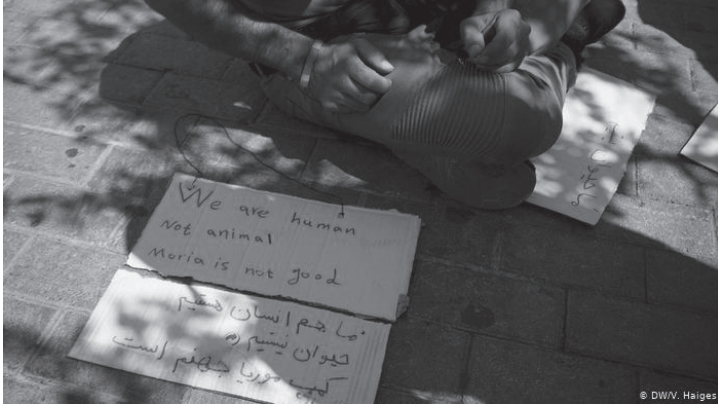 We are human
Not animal
Moria is not good
ما هم انسان هستیم
حیوان نیستیم
کمپ موریا جهنم است
© DW/V. Haiges